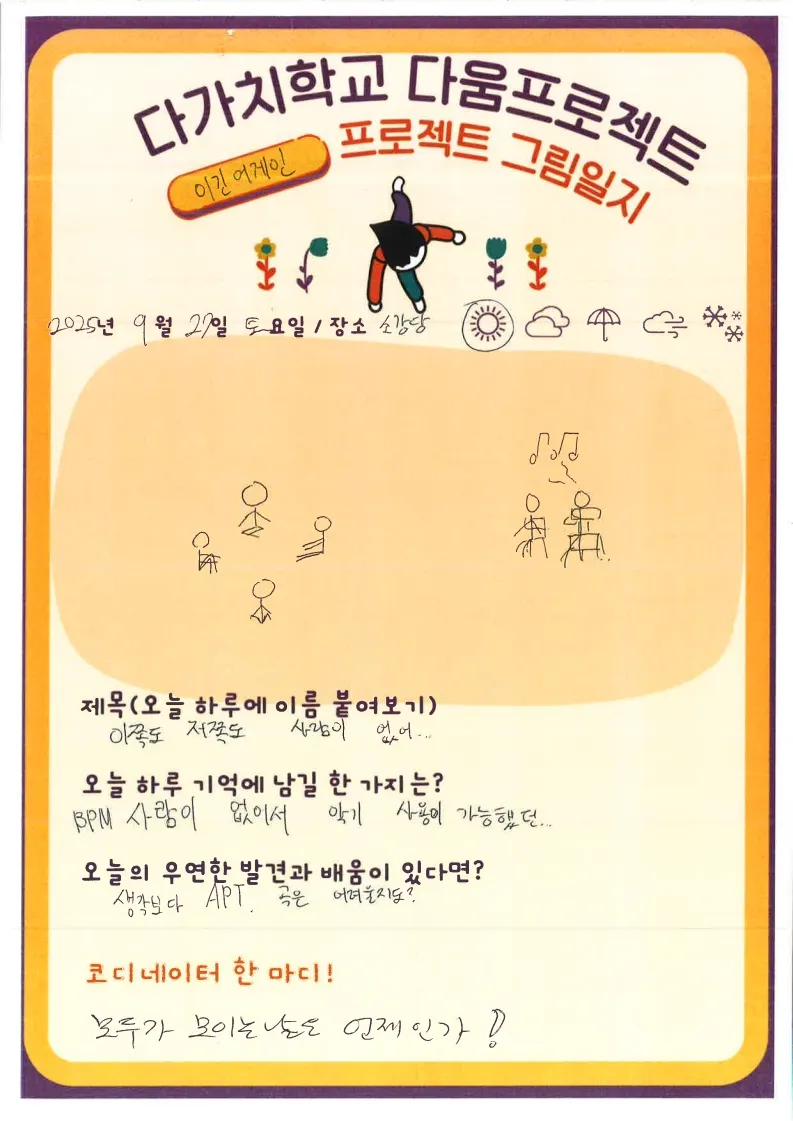 다가치학교 다움프로젝트
프로젝트 그림일지
이긴어게인
2025년 9월 27일 토요일 / 장소 소강당
제목(오늘 하루에 이름 붙여보기)
이쪽도 저쪽도 사람이 없어...
오늘 하루 기억에 남길 한 가지는?
BPM 사람이 없어서 악기 사용이 가능했던...
오늘의 우연한 발견과 배움이 있다면?
생각보다 APT. 곡은 어려울지도?
코디네이터 한 마디!
모두가 모이는 날은 언제인가?